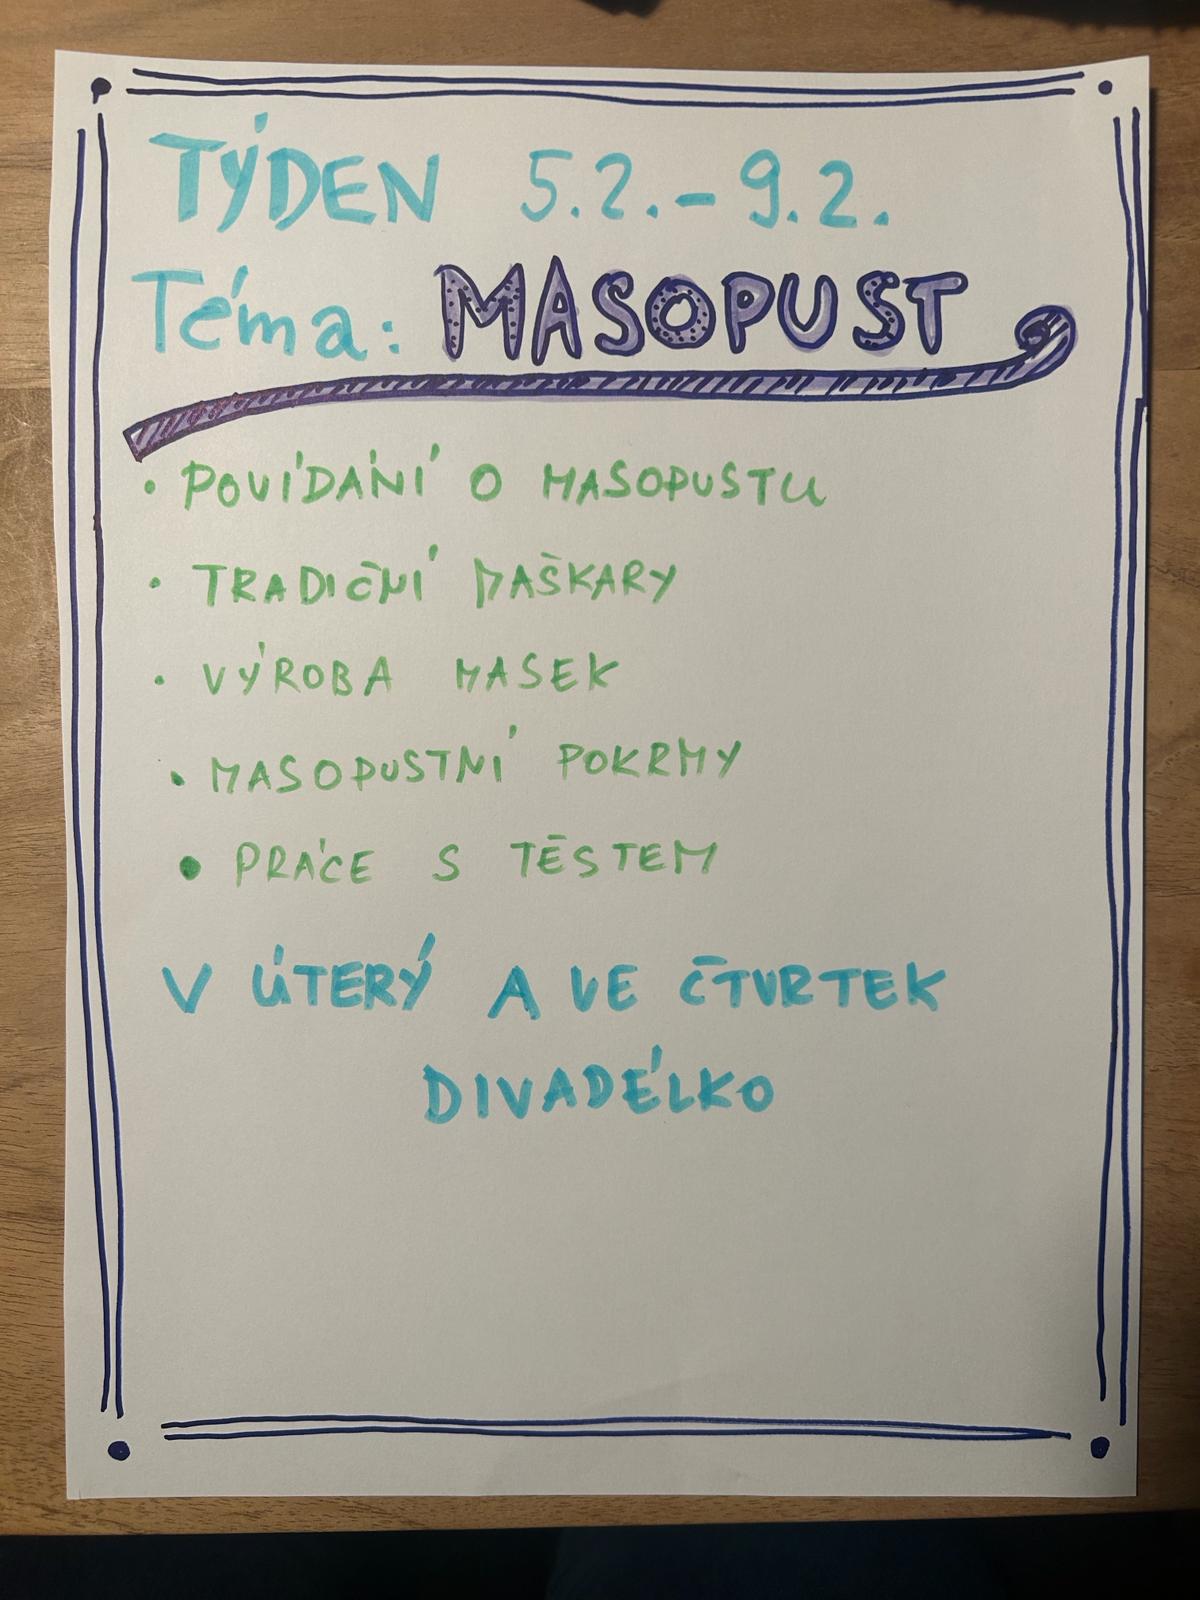 TÝDEN 5.2.-9.2.
Téma: MASOPUST
• POVÍDÁNÍ O MASOPUSTU
• TRADIČNÍ MAŠKARY
• VÝROBA MASEK
• MASOPUSTNÍ POKRMY
• PRÁCE S TĚSTEM
V ÚTERÝ A VE ČTVRTEK
DIVADÉLKO